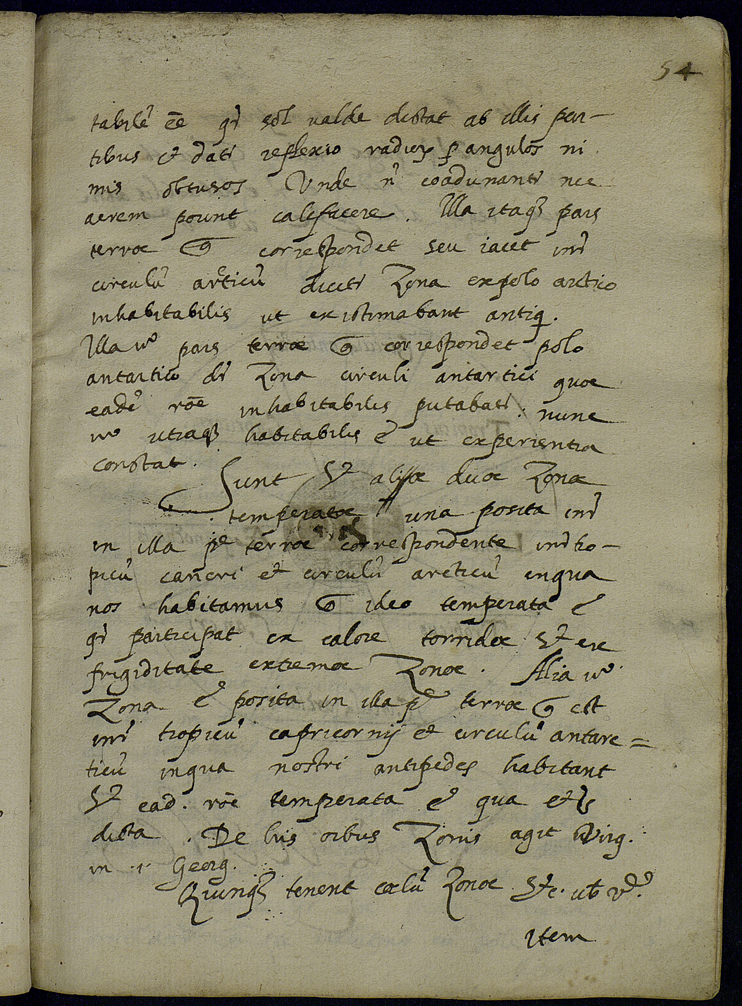 54
tabilē ēe qr̄ sol valde distat ab illis par-
tibus et dati reflexio radioꝝ ꝑ angulos ni
mis obtusos Unde n̄ coadunanti nec
aerem pount calefacere. Illa itaqꝫ pars
terrae correspondet seu iacet intr̄
circulū articū diciti Zona ex polo arctico
inhabitabilis ut existimabant antiq.
Illa vo pars terrae correspondet polo
antartico dr̄ Zona circuli antartici quae
eadē rōe inhabitabilis putabati. nunc
vo utraqꝫ habitabilis ē ut experientia
constat.
Sunt et aliae duae Zonae
temperatae una posita intr̄
in illa pe terrae correspondente intr̄ tro-
picū cancri et circulū arcticū in qua
nos habitamus ideo temperata ē
qr̄ participat ex calore torridae et ex
frigiditate extremae Zonae. Alia vo
Zona ē posita in illa pe terrae est
intr̄ tropicū capricornij et circulū antarc=
ticū in qua nostri antipedes habitant
et ead. rōe temperata ē qua
dicta. De his oibus Zonis agit Virg.
in .1. Georg.
Quinqꝫ tenent caelū Zonae &c. ub
item